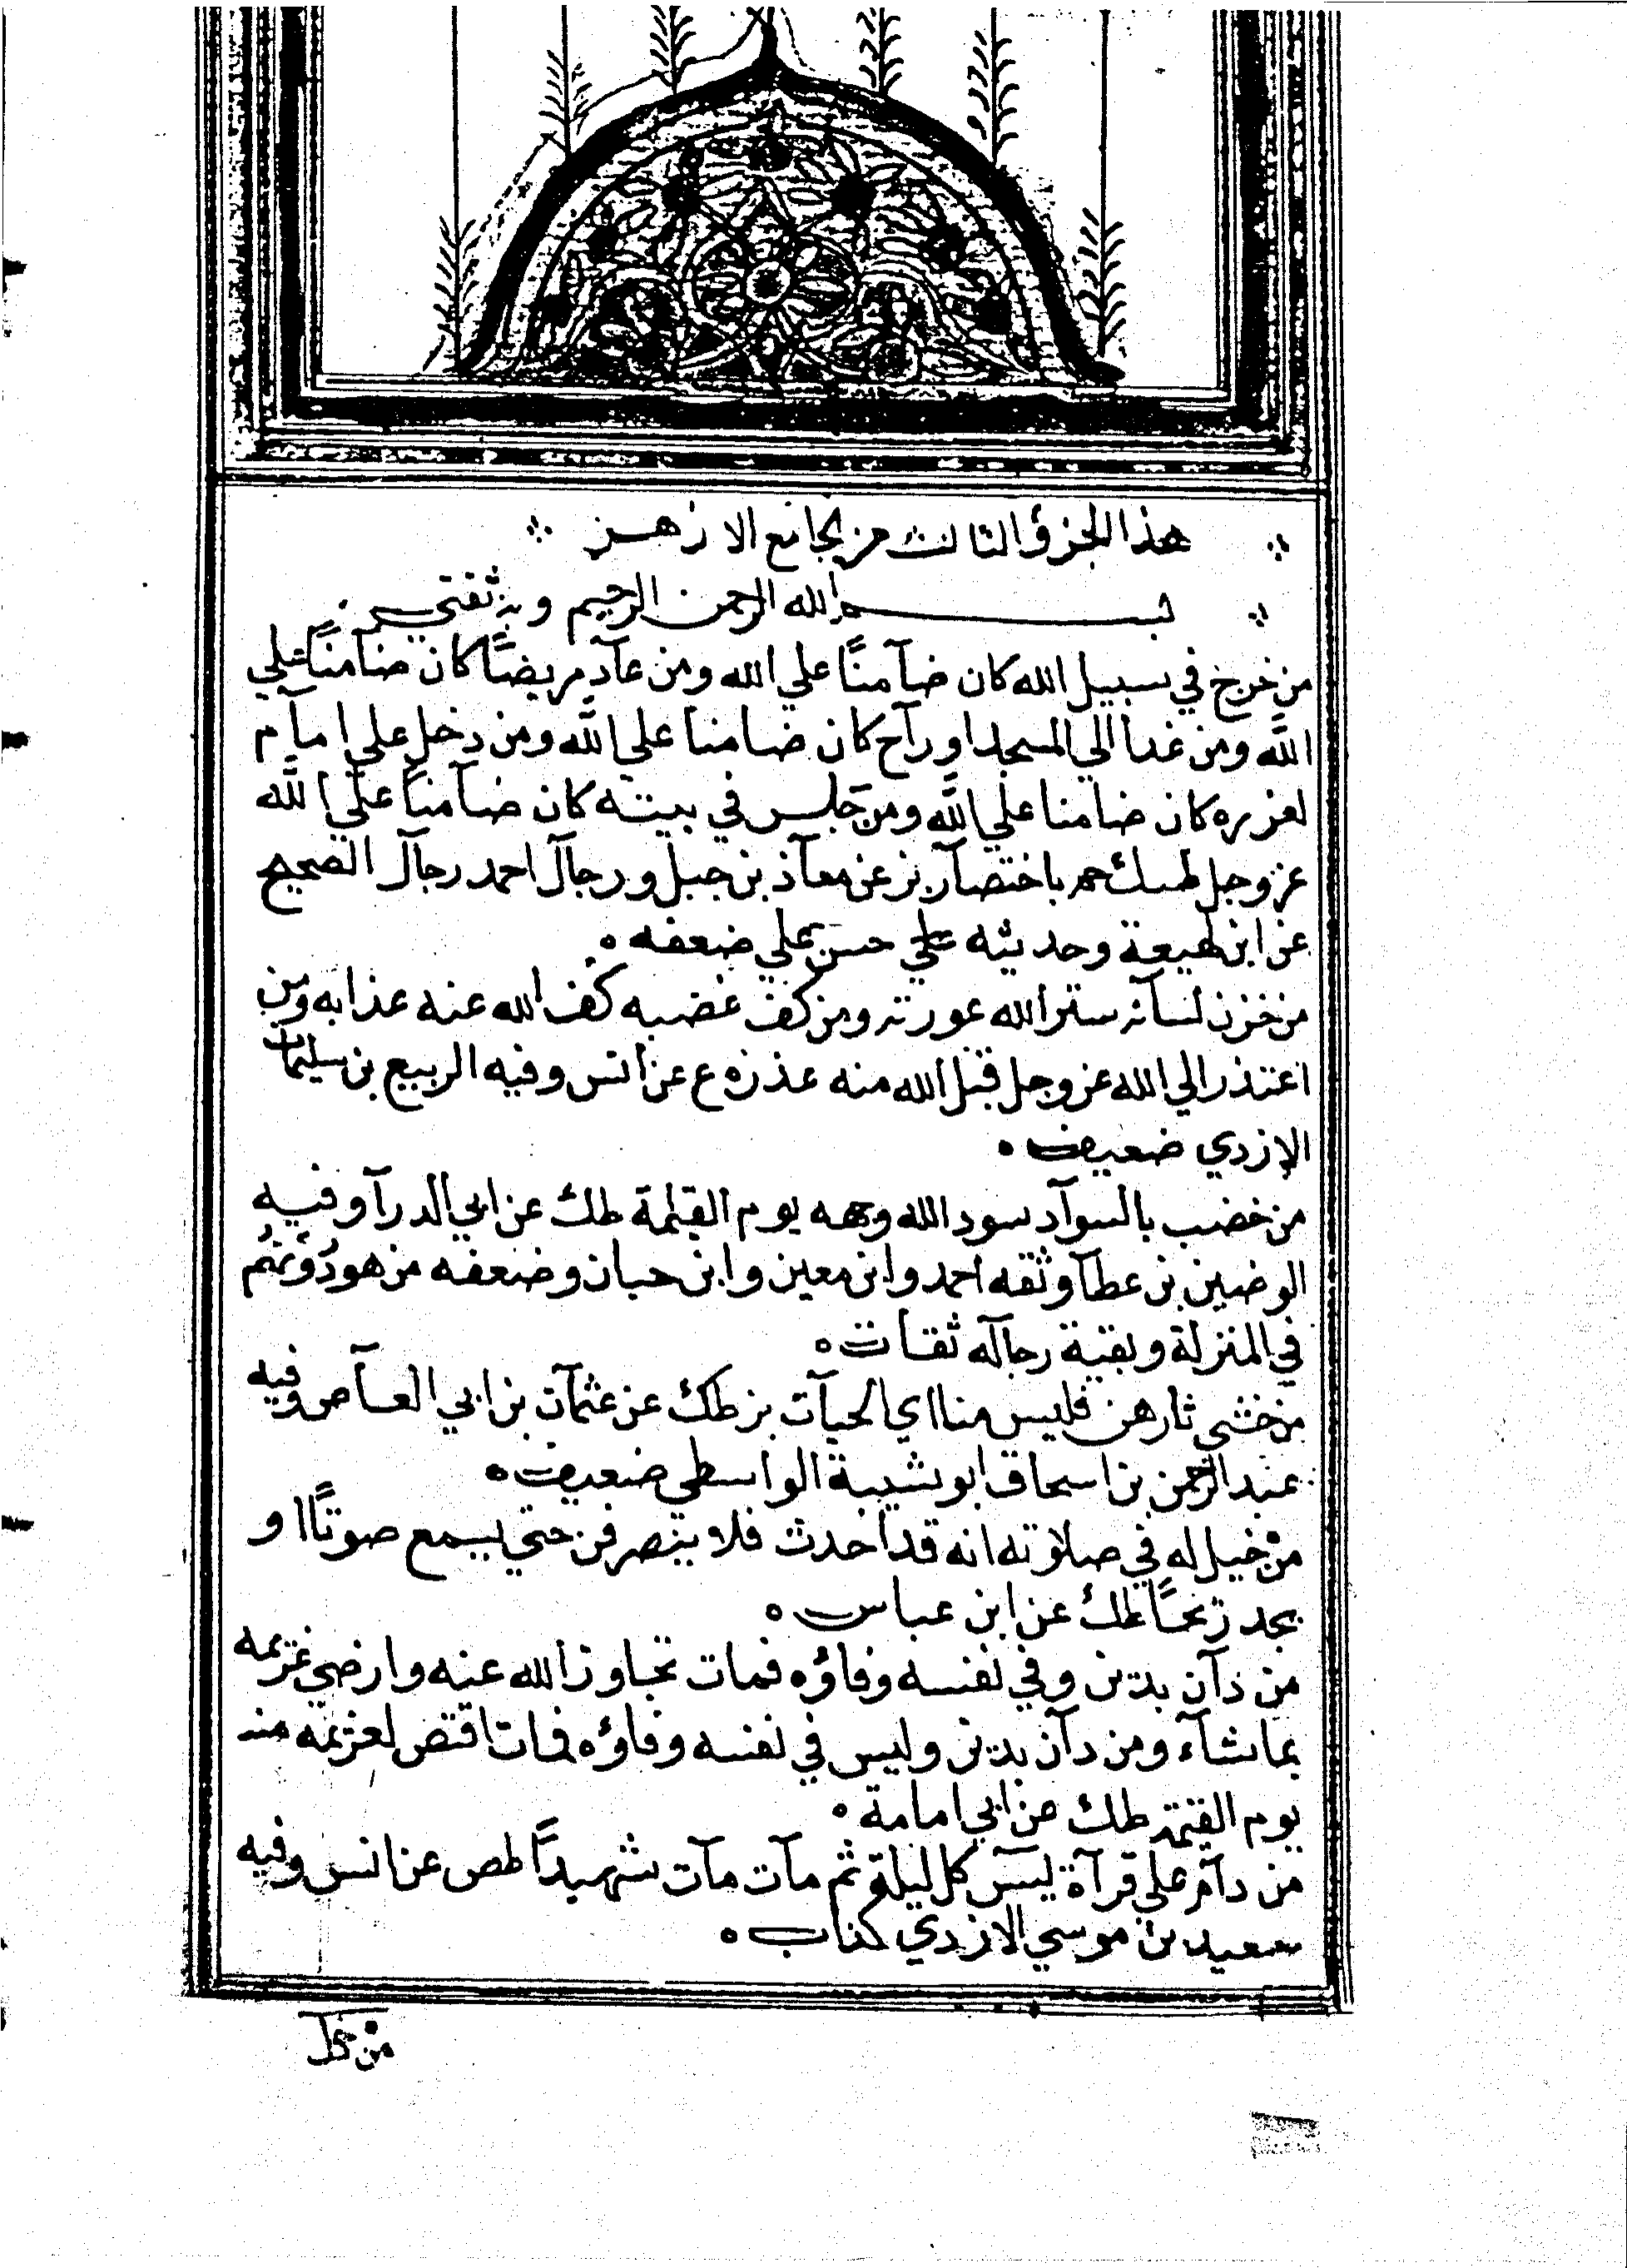 هذا الجزؤ الثالث من الجامع الازهر
بسم الله الرحمن الرحيم وبه ثقتي
من خرج في سبيل الله كان ضآمنًا علي الله ومن عآد مريضًا كان ضآمنًا علي
اللّه ومن غدا الي المسجد او رآح كان ضامنا علي اللّه ومن دخل علي امآم
لعزره كان ضامنا علي اللّه ومن جلس في بيته كان ضآمنا علي اللّه
عز وجل طبك حم باختصآر بز عن معآذ بن جبل ورجآل احمد رجآل الصحيح
عن ابن لهيعة وحديثه حسن علي ضعفه ه
من خزن لسآنه ستر الله عورته ومن كف غضبه كف الله عنه عذابه ومن
اعتذر الي الله عز وجل قبل الله منه عذره ع عن انس وفيه الربيع بن سليمان
الازدي ضعيف ه
من خضب بالسوآد سود الله وجهه يوم القيامة طبك عن ابي الدردآ وفيه
الوضين بن عطآ وثقه احمد وابن معين وابن حبان وضعفه من هو دونهُم
في المنزلة وبقية رجاله ثقات ه
من خشي ثارهن فليس منا اي الحيآت بز طبك عن عثمآن بن ابي العآص وفيه
عبد الرحمن بن اسحاق ابو شيبة الواسطي ضعيف ه
من خيل له في صلاته انه قد احدث فلا ينصرفن حتي يسمع صوتًا او
يجد ريحًا طبك عن ابن عباس ه
من دآن بدين وفي نفسه وفاؤه فمات تجاوز الله عنه وارضي غريمه
بما شآء ومن دآن بدين وليس في نفسه وفاؤه فمات اقتص لغريمه منه
يوم القيمة طبك عن ابي امامة ه
من دآم علي قرآة يسٓ كل ليلة ثم مآت مآت شهيدًا طص عن انس وفيه
سعيد بن موسي الازدي كذاب ه